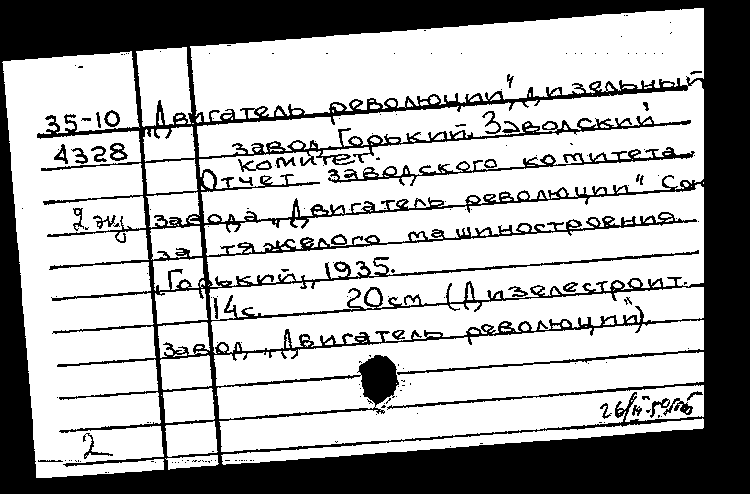 35-10 „Двигатель революции", дизельный
4328 завод, Горький. Заводский
комитет.
Отчет заводского комитета
2 экз. завода „Двигатель революции" Сою
за тяжелого машиностроения.
„Горький„, 1935.
14с. 20см. (Дизелестроит.
завод „Двигатель революции").
2